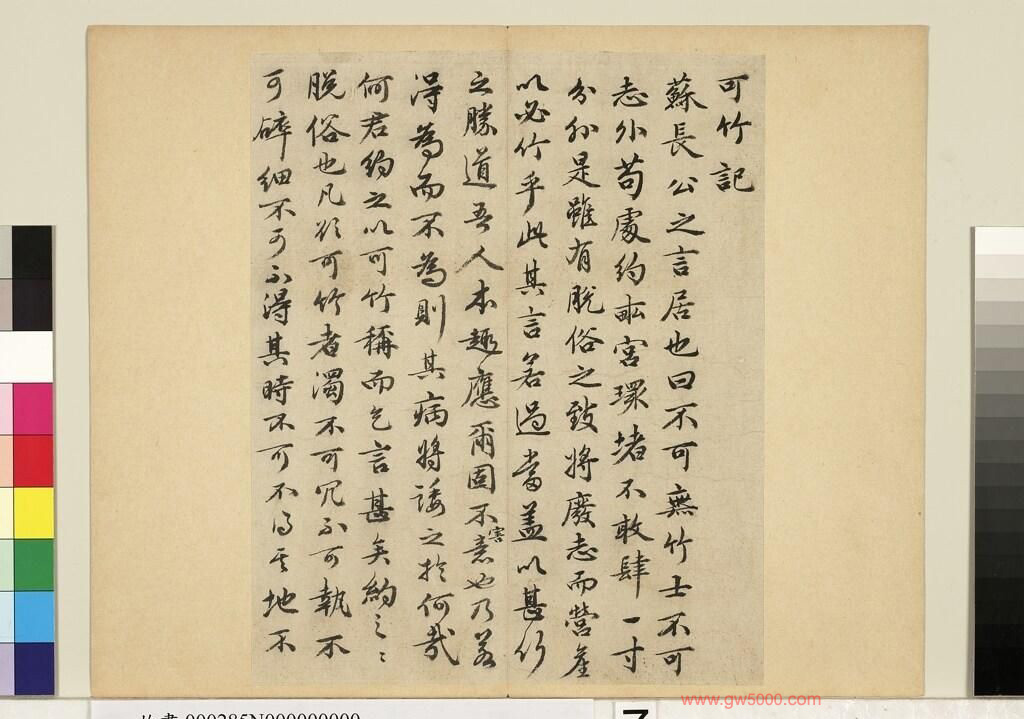 可竹記
蘇長公之言居也曰不可無竹士不可
志外苟處約畝宮環堵不敢肆一寸
分外是雖有脫俗之致將廢志而營產
以必竹乎此其言若過當蓋以甚竹
之勝道吾人本趣應爾固不害意也乃若
得為而不為則其病將諉之於何哉
何君約之以可竹稱而乞言甚矣約之之
脫俗也凡欲可竹者濁不可冗不可執不
可碎細不可不得其時不可不得其地不
www.gw5000.com
000285N000000000